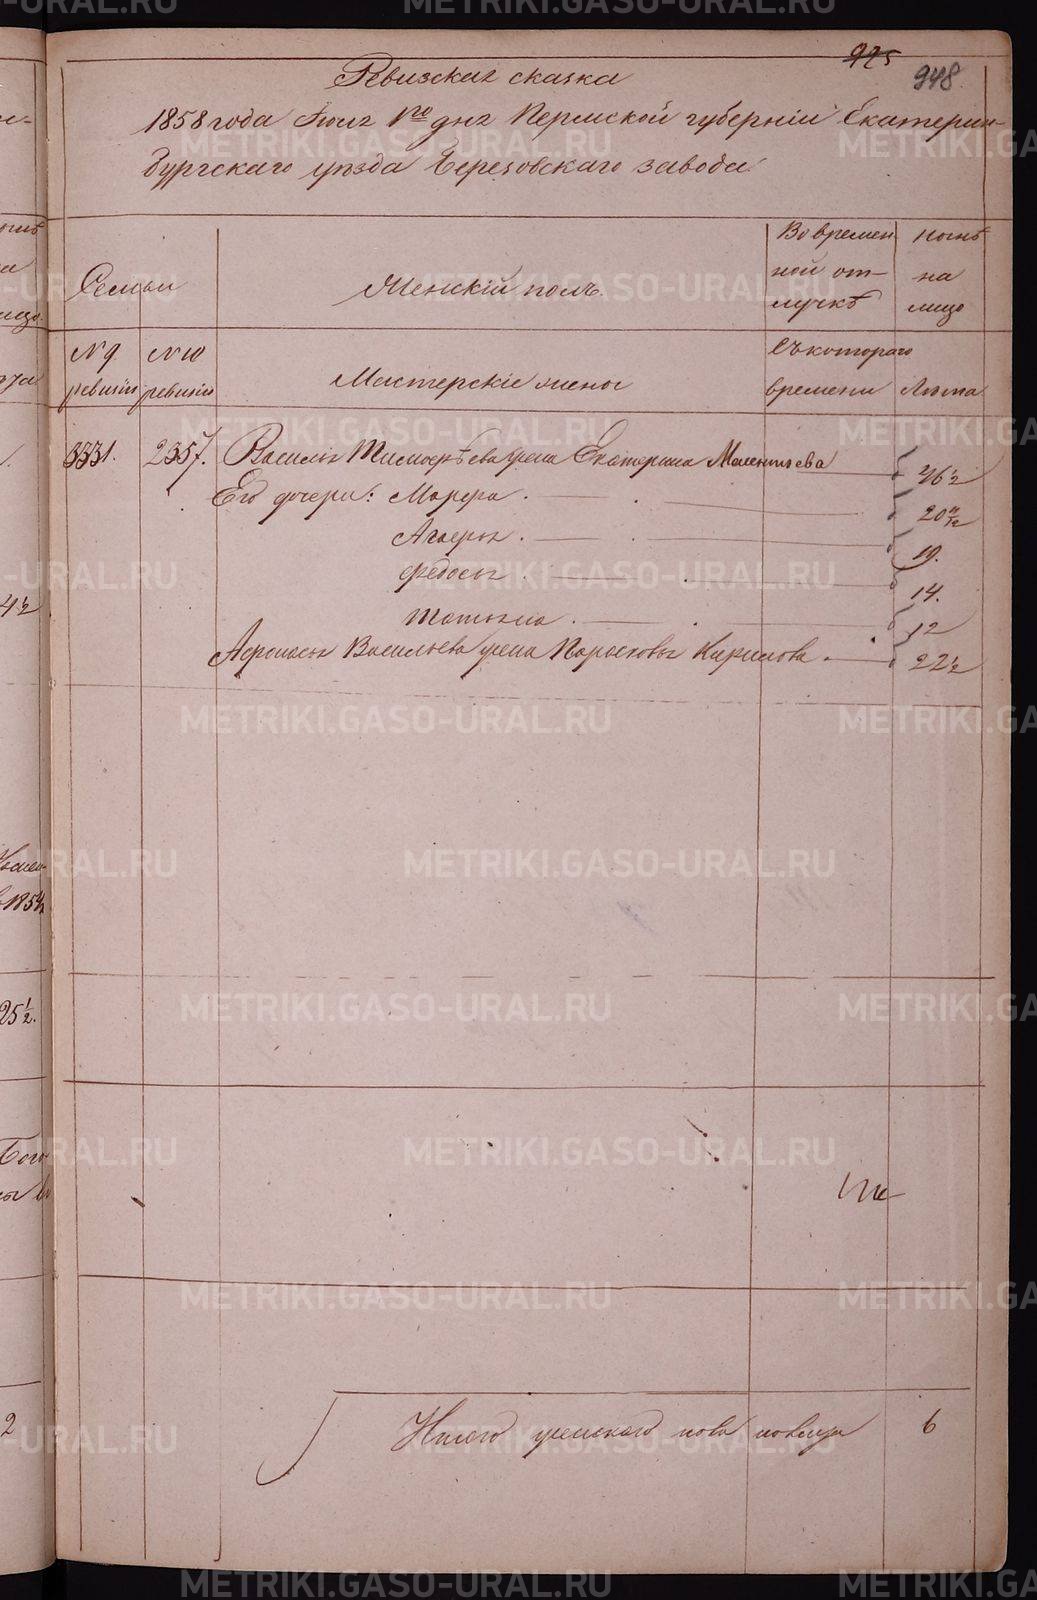 925
948.
Ревизская сказка
1858 года Июля 1го дня Пермской губернiи Екатерин-
бургскаго уѣзда Березовскаго завода.
Семьи
Женскiй полъ.
Во времен
ной от-
лучкѣ
нынѣ
на
лицо
N 9.
ревизiи
N 10
ревизiи
Мастерскiе жены
Съ котораго
времени
Лѣта
3331. 2357. Василья Тимофѣева жена Екатерина Малентьева 46½
Его дочери: Марфа. 20 11/12
19.
Федосья 14.
Татьяна. 12
Афонасья Васильева жена Парасковья Кирилова 22½
Итого женскаго пола 6
METRIKI.GASO-URAL.RU